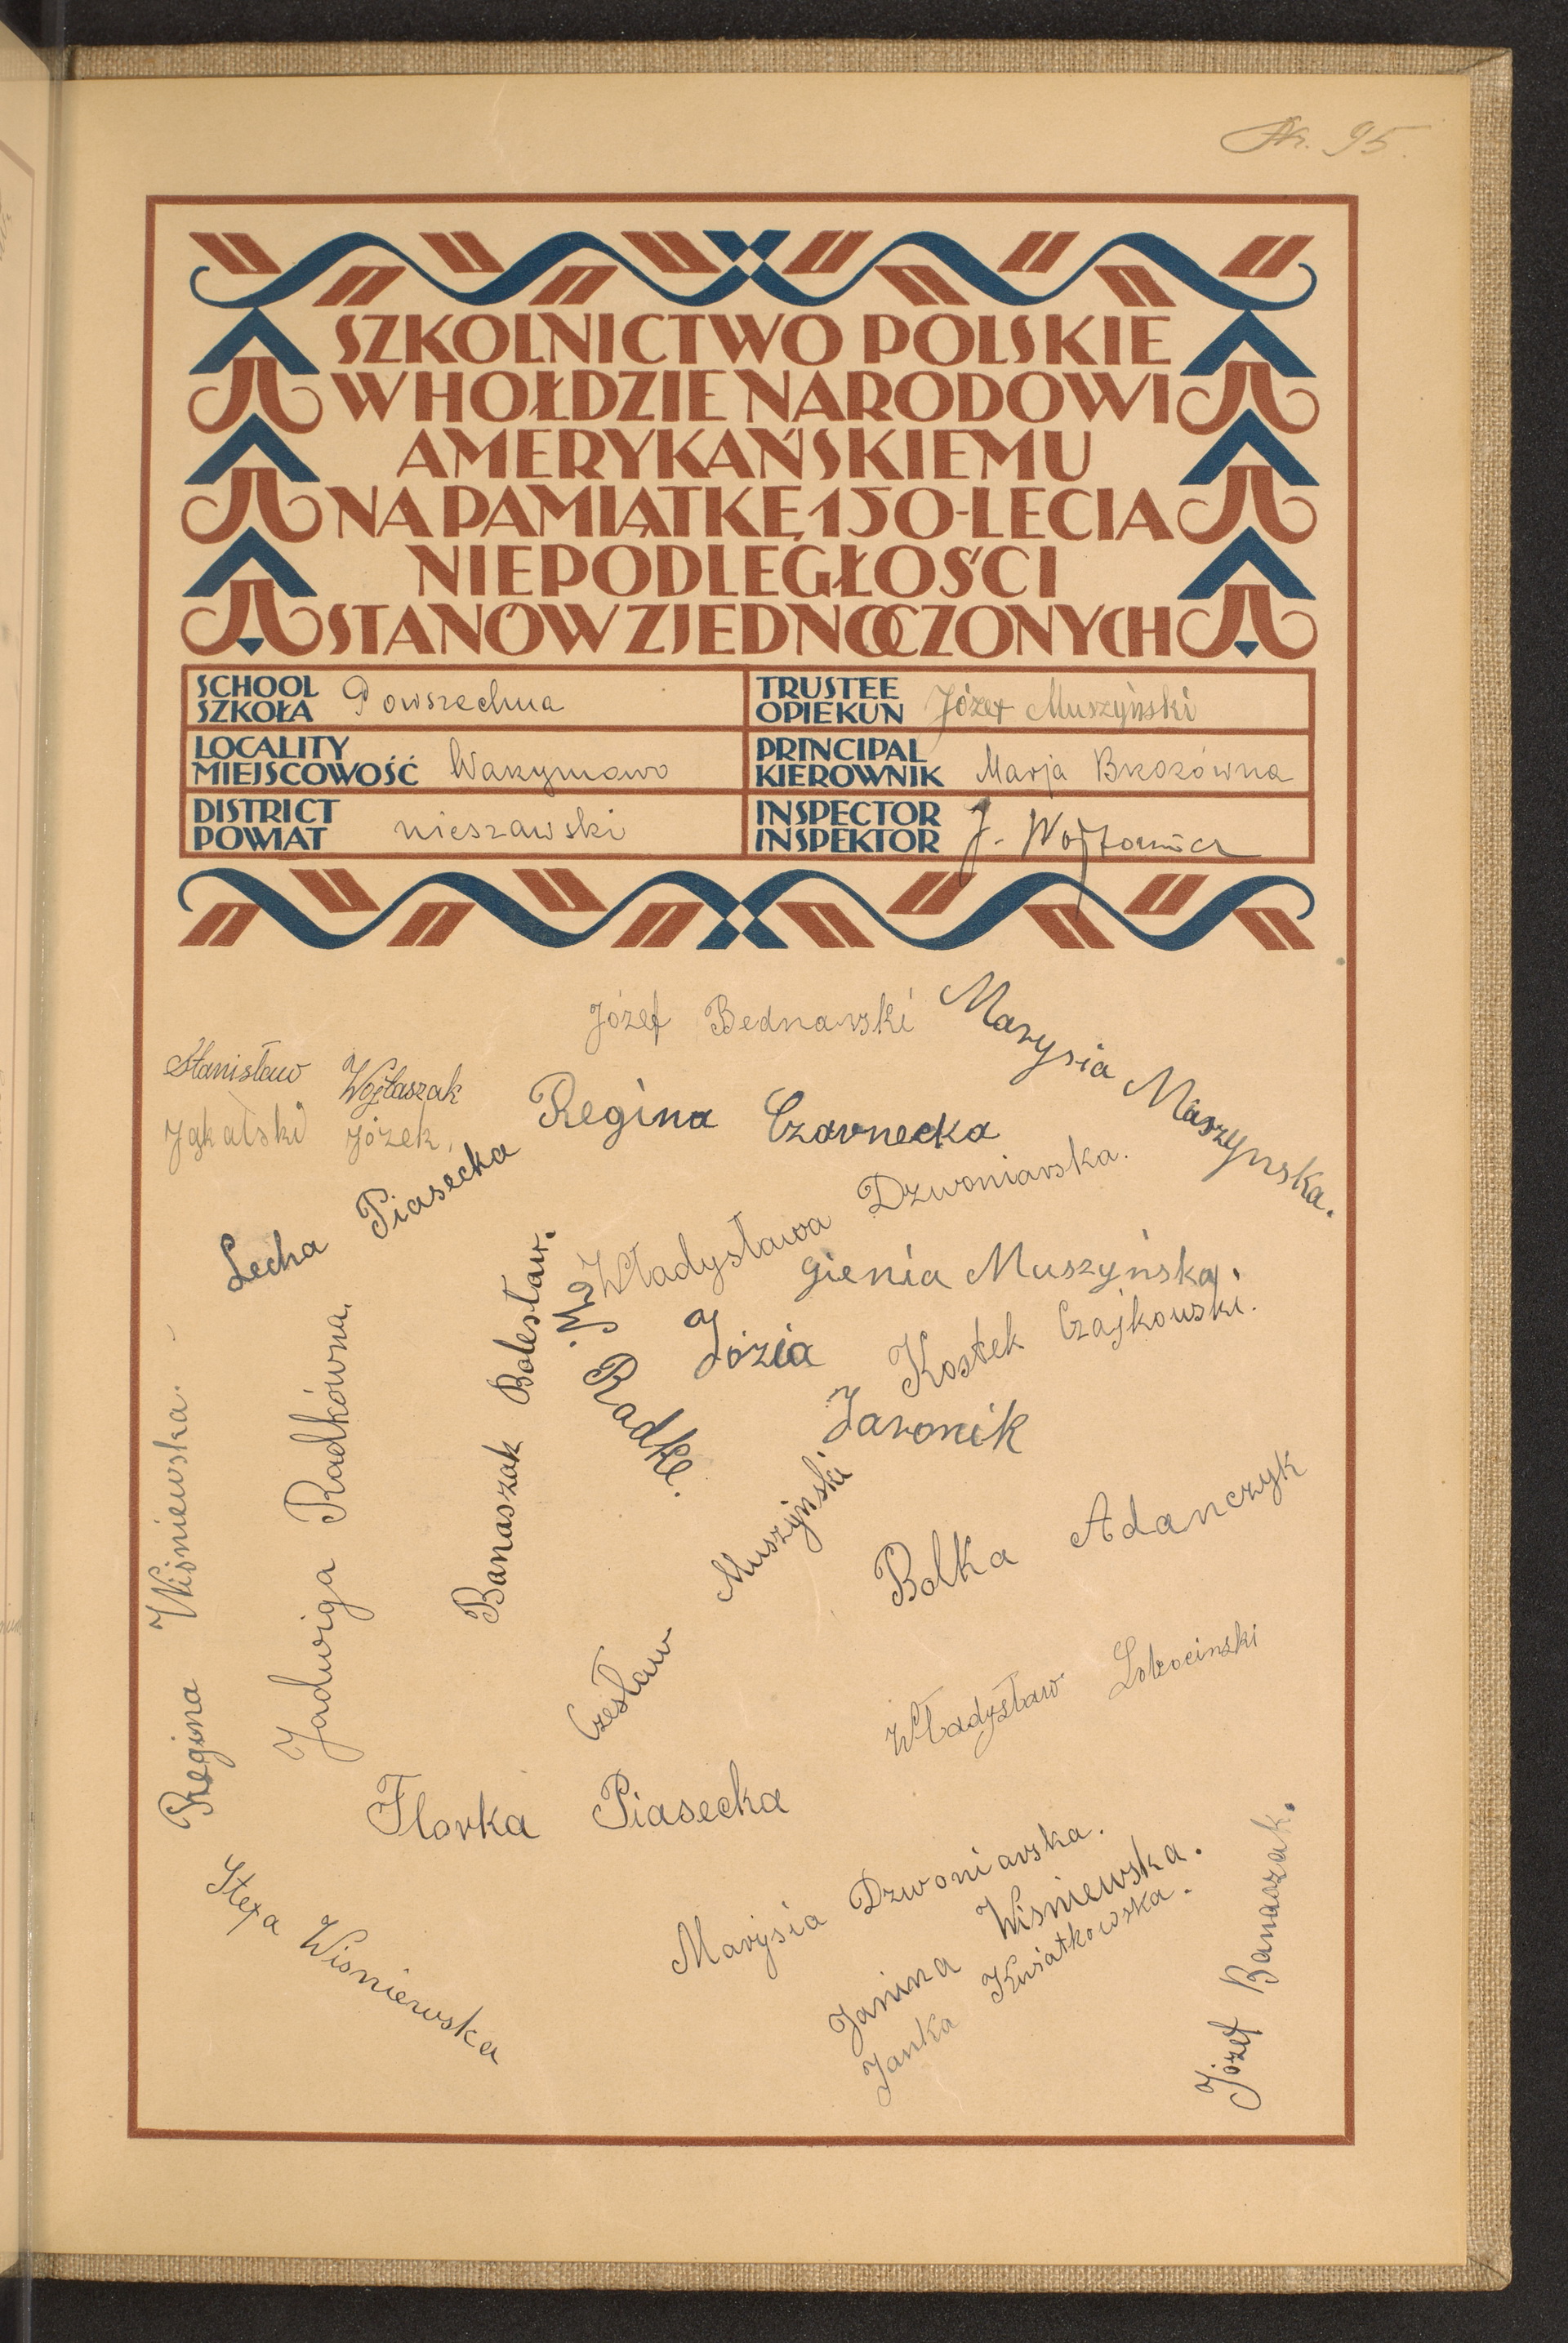 Str. 95.
SZKOLNICTWO POLSKIE
W HOŁDZIE NARODOWI
AMERYKAŃSKIEMU
NA PAMIĄTKĘ 150-LECIA
NIEPODLEGŁOŚCI
STANÓW ZJEDNOCZONYCH
SCHOOL
SZKOŁA Powszechna
TRUSTEE
OPIEKUN Józef Muszyński
LOCALITY
MIEJSCOWOŚĆ Warzymowo
PRINCIPAL
KIEROWNIK Marja Brzozówna
DISTRICT
POWIAT nieszawski
INSPECTOR
INSPEKTOR J.
Józef Bednarski
Marysia Muszynska.
Stanisław Wojtaszak
Jąkalski Józek.
Regina Czarnecka
Lecha Piasecka
Władysława Dzwoniarska.
Gienia Muszyńska.
Józia Jaronik
Kostek Czajkowski.
Radke.
Banaszak Bolesław.
Jadwiga Radkówna.
Regina Wiśniewska.
Czesław Muszyński
Bolka Adanczyk
Władysław
Florka Piasecka
Stefa Wisniewska
Marysia Dzwoniarska.
Janina Wisniewska.
Janka Kwiatkowska.
Józef Banaszak.